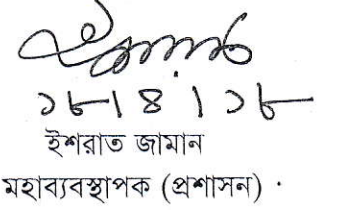 ১৮।৪।১৮
ইশরাত জামান
মহাব্যবস্থাপক (প্রশাসন)